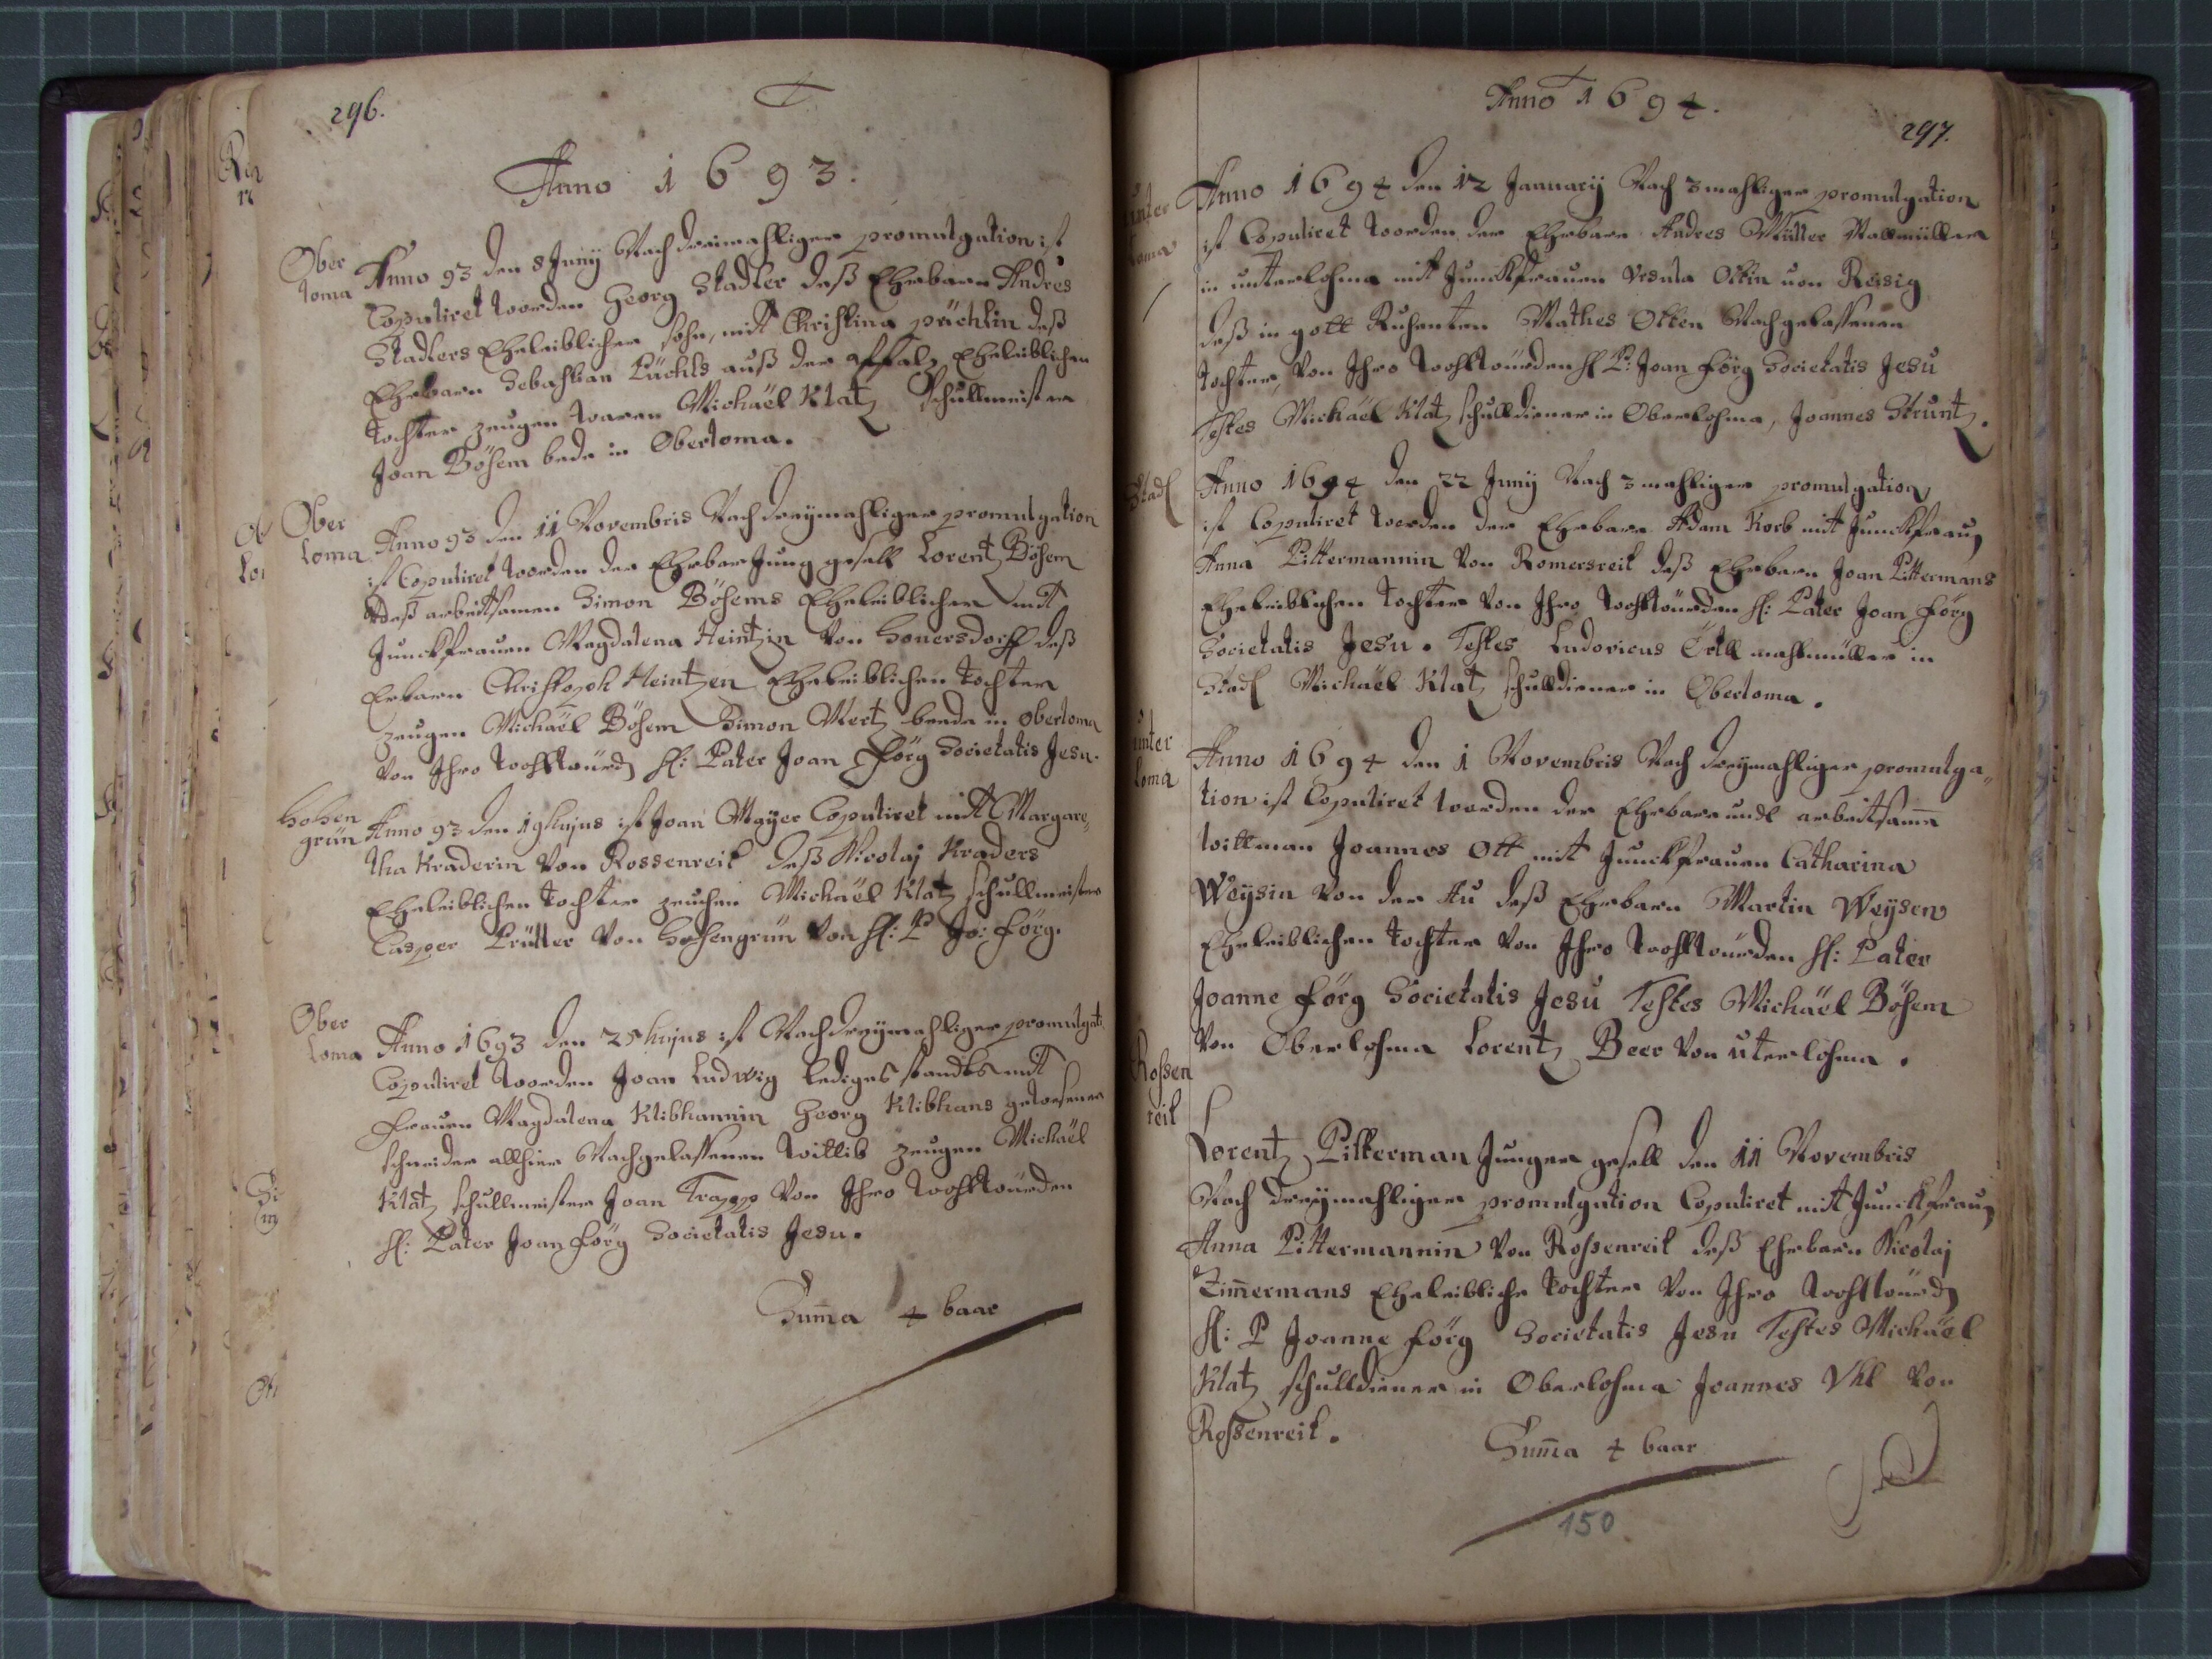 296.
Anno 1693.
Ober
loma
Anno 93 den 8 Juny Nach dreimahliger promulgation ist
Copuliret worden Georg Stadler deß Ehrbarn Andres
Stadlers Eheleiblicher sohn, mit Christina püchlin deß
Ehrbarn Sebastian Püchls auß der Pfaltz Eheleiblichen
tochter zeugen waren Michaël Klatz Schullmeister
Joan Böhem bede in Oberloma.
Ober
loma
Anno 93 den 11 Novembris Nach dreymahliger promulgation
ist Copuliret worden der Ehrbar Jung gesell Lorentz Böhem
deß arbeitsamen Simon Böhems Eheleiblicher mit
Junckfrauen Magdalena Heintzin von Souersdorff deß
Erbarn Christoph Heintzen Eheleiblichen tochter
zeugen Michaël Böhem Simon Mertz beede in oberloma
von Ihro wohlwürd H: Pater Joan Förg Societatis Jesu.
Hohen
grün
Anno 93 den 19 hujus ist Joan Mayer Copuliret mit Margare„
tha Kraderin von Rossenreit deß Nicolaj Kraders
Eheleiblichen tochter zeuchen Michaël Klatz schullmeister
Casper Prütter von Hohengrün von H: P Jo: Förg.
Ober
loma
Anno 1693 den 25 hujus ist Nach dreymahliger promulgati
Copuliret worden Joan Ludwig lediges standts mit
frauen Magdalena Klibhannin Georg Klibhans gewesener
schneider allhier Nachgelassenen wittib zeugen Michaël
Klatz schullmeister Joan Trapp von Ihro wohlwürden
H: Pater Joan Förg Societatis Jesu.
Suma 4 baar
Anno 1694.
297.
unter
loma
Anno 1694 den 12 January Nach 3mahliger promulgation
ist Copuliret worden der Ehrbare Andres Müller
in unterlohma mit Junckfrauen Ursula Ottin von Reisig
deß in gott Ruhenten Mathes Otten Nachgelassenen
tochter, von Ihro wohlwürden H P: Joan Förg Societatis Jesu
Testes Michaël Klatz schulldiener in Oberlohma, Joannes Strunz.
Stadl
Anno 1694 den 22 Juny Nach 3mahliger promulgation
ist Copuliret worden der Ehrbare Adam Korb mit Junckfrau
Anna Pittermannin von Romersreit deß Ehrbarn Joan Pittermans
Eheleiblichen tochter von Ihro wohlwürden H: Pater Joan Förg
Societatis Jesu. Testes Ludovicus Örtll mahlmüller in
Stadl Michaël Klatz schulldiener in Oberloma.
unter
loma
Anno 1694 den 1 Novembris Nach dreymahliger promulga„
tion ist Copuliret worden der Ehrbare undt arbeitsame
wittman Joannes Ott mit Junckfrauen Catharina
Weysin von der Au deß Ehrbarn Martin Weysen
Eheleiblichen tochter von Ihro wohlwürden H: Pater
Joanne Förg Societatis Jesu Testes Michaël Böhem
von Oberlohma Lorentz Beer von uterlohma.
Roßen
reit
Lorentz Pitterman Junger gesell den 11 Novembris
Nach dreymahliger promulgation Copuliret mit Junckfrau
Anna Pittermannin von Roßenreit deß Ehrbarn Nicolaj
Zimermans Eheleibliche tochter von Ihro wohlwürd
H: P Joanne Förg Societatis Jesu Testes Michaël
Klatz schulldiener in Oberlohma Joannes Vhl von
Roßenreit.
Suma 4 baar
150